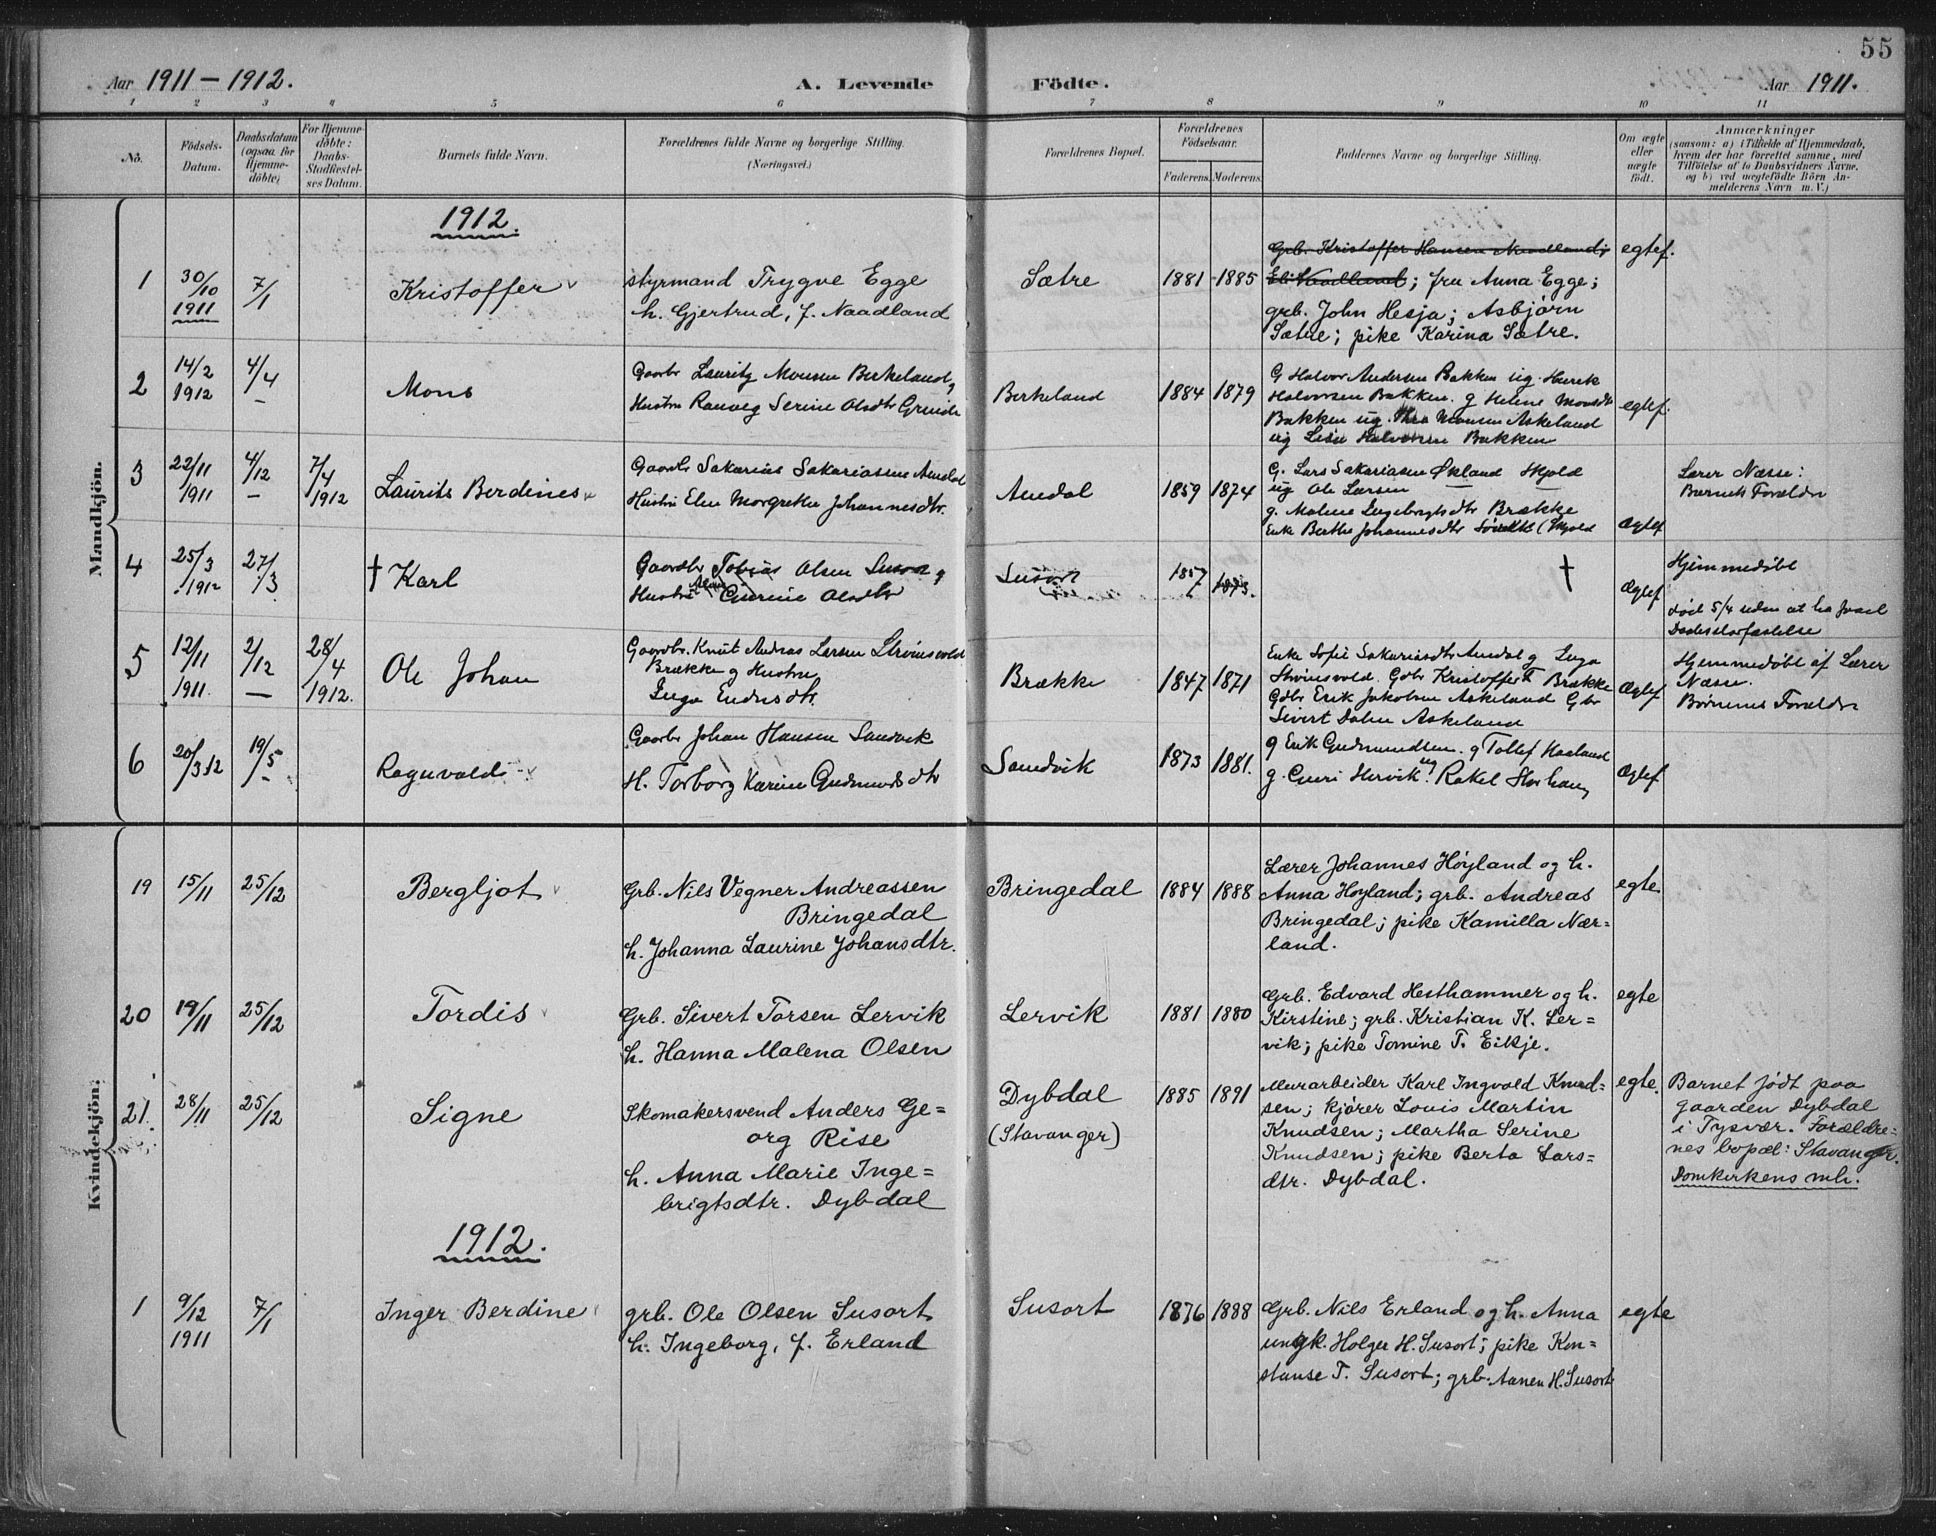 55
Aar 1911 – 1912.
A. Levende
Födte.
Aar 1911.
1 2 3 4 5 6 7 8 9 10 11
No.
Födsels-
Datum.
Daabsdatum
(ogsaa for
Hjemme-
döbte)
For Hjemme-
döbte:
Daabs-
Stadfæstel-
ses Datum.
Barnets fulde Navn.
Forældrenes fulde Navne og borgerlige Stilling.
(Næringsvei.)
Forældrenes Bopæl.
Forældrenes
Födselsaar.
Faderens. Moderens.
Faddernes Navne og borgerlige Stilling.
Om ægte
eller
uægte
födt.
Anmærkninger
(saasom: a) i Tilfælde af Hjemmedaab,
hvem der har forrettet samme, med
Tilföielse af to Daabsvidners Navne,
og b) ved uægtefödte Börn An-
melderens Navn m. V.)
Mandkjön.
1912
1
30/10
1911
7/1
Kristoffer
styrmand Trygve Egge
h. Gjertrud, f. Naadland
Sætre
1881 1885
Grb. Kristoffer Hansen Naadland;
Eli Naadland; fru Anna Egge;
grb. John Hesja; Asbjørn
Sætre; pike Karina Sætre.
egtef.
2
14/2
1912
4/4
Mons
Gaardbr Lauritz Monsen Birkeland og
Hustru Ranveg Serine Olsdtr Grinde
Birkeland
1884 1879
G Halvor Andersen Bakken ug. Henrik
Halvorsen Bakken. g Helene Monsdtr
Bakken ug. Monsen Askeland
ug Halvorsen Bakken
egtef.
3
22/11
1911
4/12
7/4
1912
Laurits Berdines
Gaardbr Sakarias Sakariassen Amdal
Hustru Elen Margrethe Johannesdtr.
Amdal
1859 1874
G. Lars Sakariasen Økland Skjold
ug Ole Larsen
g. Malene Ingebrigtsdtr Brække
Enke Berthe Johannesdtr (Skjold
Ægtef
Lærer Næsse:
Barnets Forældre
4
25/3
1912
27/3
† Karl
Gaardbr Tobias Olsen Susort og
Hustru Gurine Olsdtr
Susort
1857 1873.
†
Ægtef
Hjemmedøbt
død 5/4 uden at ha faaet
Daabsstadfæstelse
5
12/11
1911.
2/12
28/4
1912.
Ole Johan
Gaardbr. Knut Andreas Larsen Stvinsvold
Brække og Hustru
Inga Endresdtr.
Brække
1847 1871
Enke Sofie Sakariasdtr Amdal og Inga
Stvinsvold. Gdbr Kristoffer T Brække
Gdbr Erik Jakobsen Askeland Gbr
Sivert Dalen Askeland
Ægtef
Hjemmedøbt af Lærer
Næsse.
Børnenes Forældre
6
20/3 12
19/5
Ragnvald
Gaardbr Johan Hansen Sandvik
H. Torborg Karine Gudmundsdtr
Sandvik
1873 1881.
g Erik Gudmundsen. g Tollef Haaland
g. Guri Hervik. ug Rakel Storhaug
Ægtef
Kvindekjön.
19
15/11
25/12
Bergljot
Grb. Nils Vegner Andreassen
Bringedal
h. Johanna Laurine Johansdtr.
Bringedal
1884 1888
Lærer Johannes Høyland og h.
Anna Høyland; grb. Andreas
Bringedal; pike Kamilla Nær=
land.
egte
20
19/11
25/12
Tordis
Grb. Sivert Torsen Lervik
h. Hanna Malena Olsen
Lervik
1881 1880
Grb. Edvard Hesthammer og h.
Kirstine; grb. Kristian K. Ler=
vik; pike Tomine T. Eikje.
egte
21.
28/11
25/12
Signe
Skomakersvend Anders Ge=
org Rise
h. Anna Marie Inge=
brigtsdtr. Dybdal
Dybdal
(Stavanger)
1885 1891
Murarbeider Karl Ingvald Knud=
sen; kjører Louis Martin
Knudsen; Martha Serine
Knudsen; pike Berta Lars=
dtr. Dybdal.
egte.
Barnet født paa
gaarden Dybdal
i Tysvær. Forældre=
nes bopæl: Stavanger.
Domkirkens mh.
1912.
1
9/12
1911
7/1
Inger Berdine
grb. Ole Olsen Susort
h. Ingeborg, f. Erland
Susort
1876 1888
Grb. Nils Erland og h. Anna
ungk. Holger H. Susort; pike Kon=
stanse T. Susort; grb. Aanen H. Susort
egte